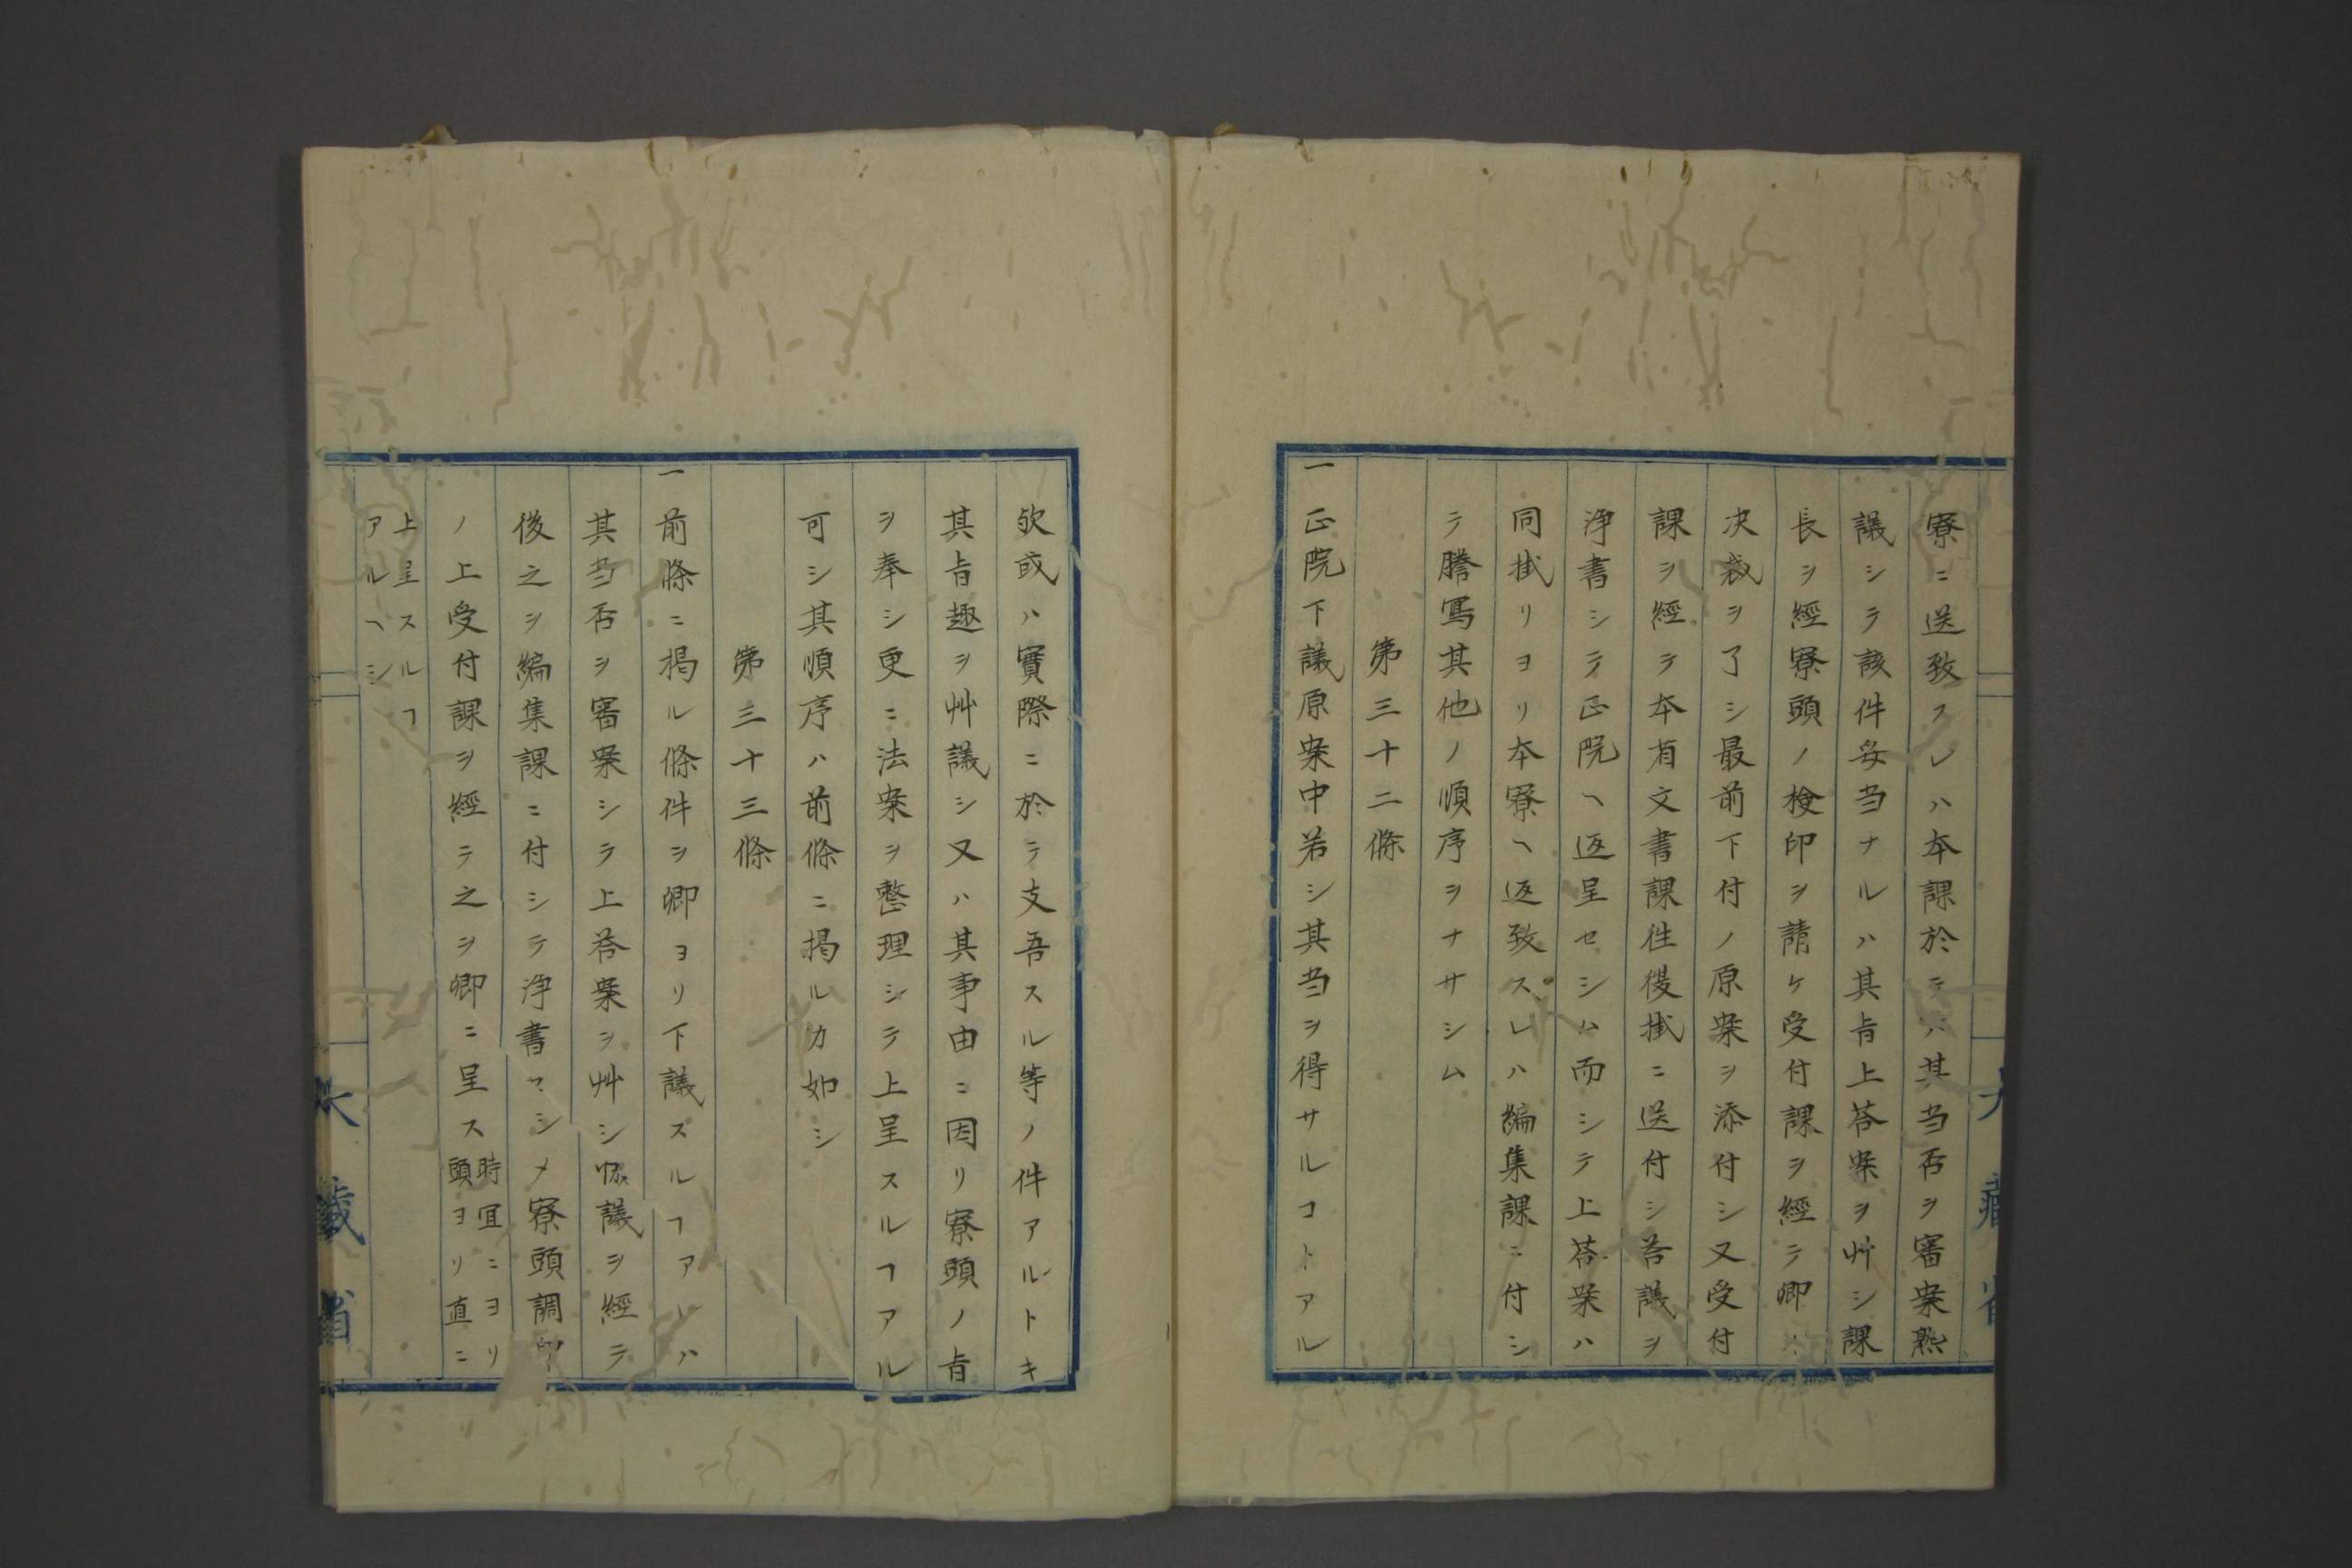 寮ニ送致スレハ本課於テハ其当否ヲ審案熟
議シテ該件妥当ナルハ其旨上荅案ヲ艸シ課
長ヲ經寮頭ノ検印ヲ請ケ受付課ヲ經テ卿ノ
决裁ヲ了シ最前下付ノ原案ヲ添付シ又受付
課ヲ經テ本省文書課徃復掛ニ送付シ荅議ヲ
浄書シテ正院ヘ返呈セシム而シテ上荅案ハ
同掛リヨリ本寮ヘ返致スレハ編集課ニ付シ
テ謄寫其他ノ順序ヲナサシム
第三十二條
一正院下議原案中若シ其当ヲ得サルコトアル
欤或ハ實際ニ於テ支吾スル等ノ件アルトキ
其旨趣ヲ艸議シ又ハ其事由ニ因リ寮頭ノ旨
ヲ奉シ更ニ法案ヲ整理シテ上呈スルヿアル
可シ其順序ハ前條ニ掲ルカ如シ
第三十三條
一前條ニ掲ル條件ヲ卿ヨリ下議スルヿアレハ
其当否ヲ審案シテ上荅案ヲ艸シ恊議ヲ經テ
後之ヲ編集課ニ付シテ浄書セシメ寮頭調印
ノ上受付課ヲ經テ之ヲ卿ニ呈ス
時宜ニヨリ
頭ヨリ直ニ
上呈スルヿ
アルヘシ
大藏省